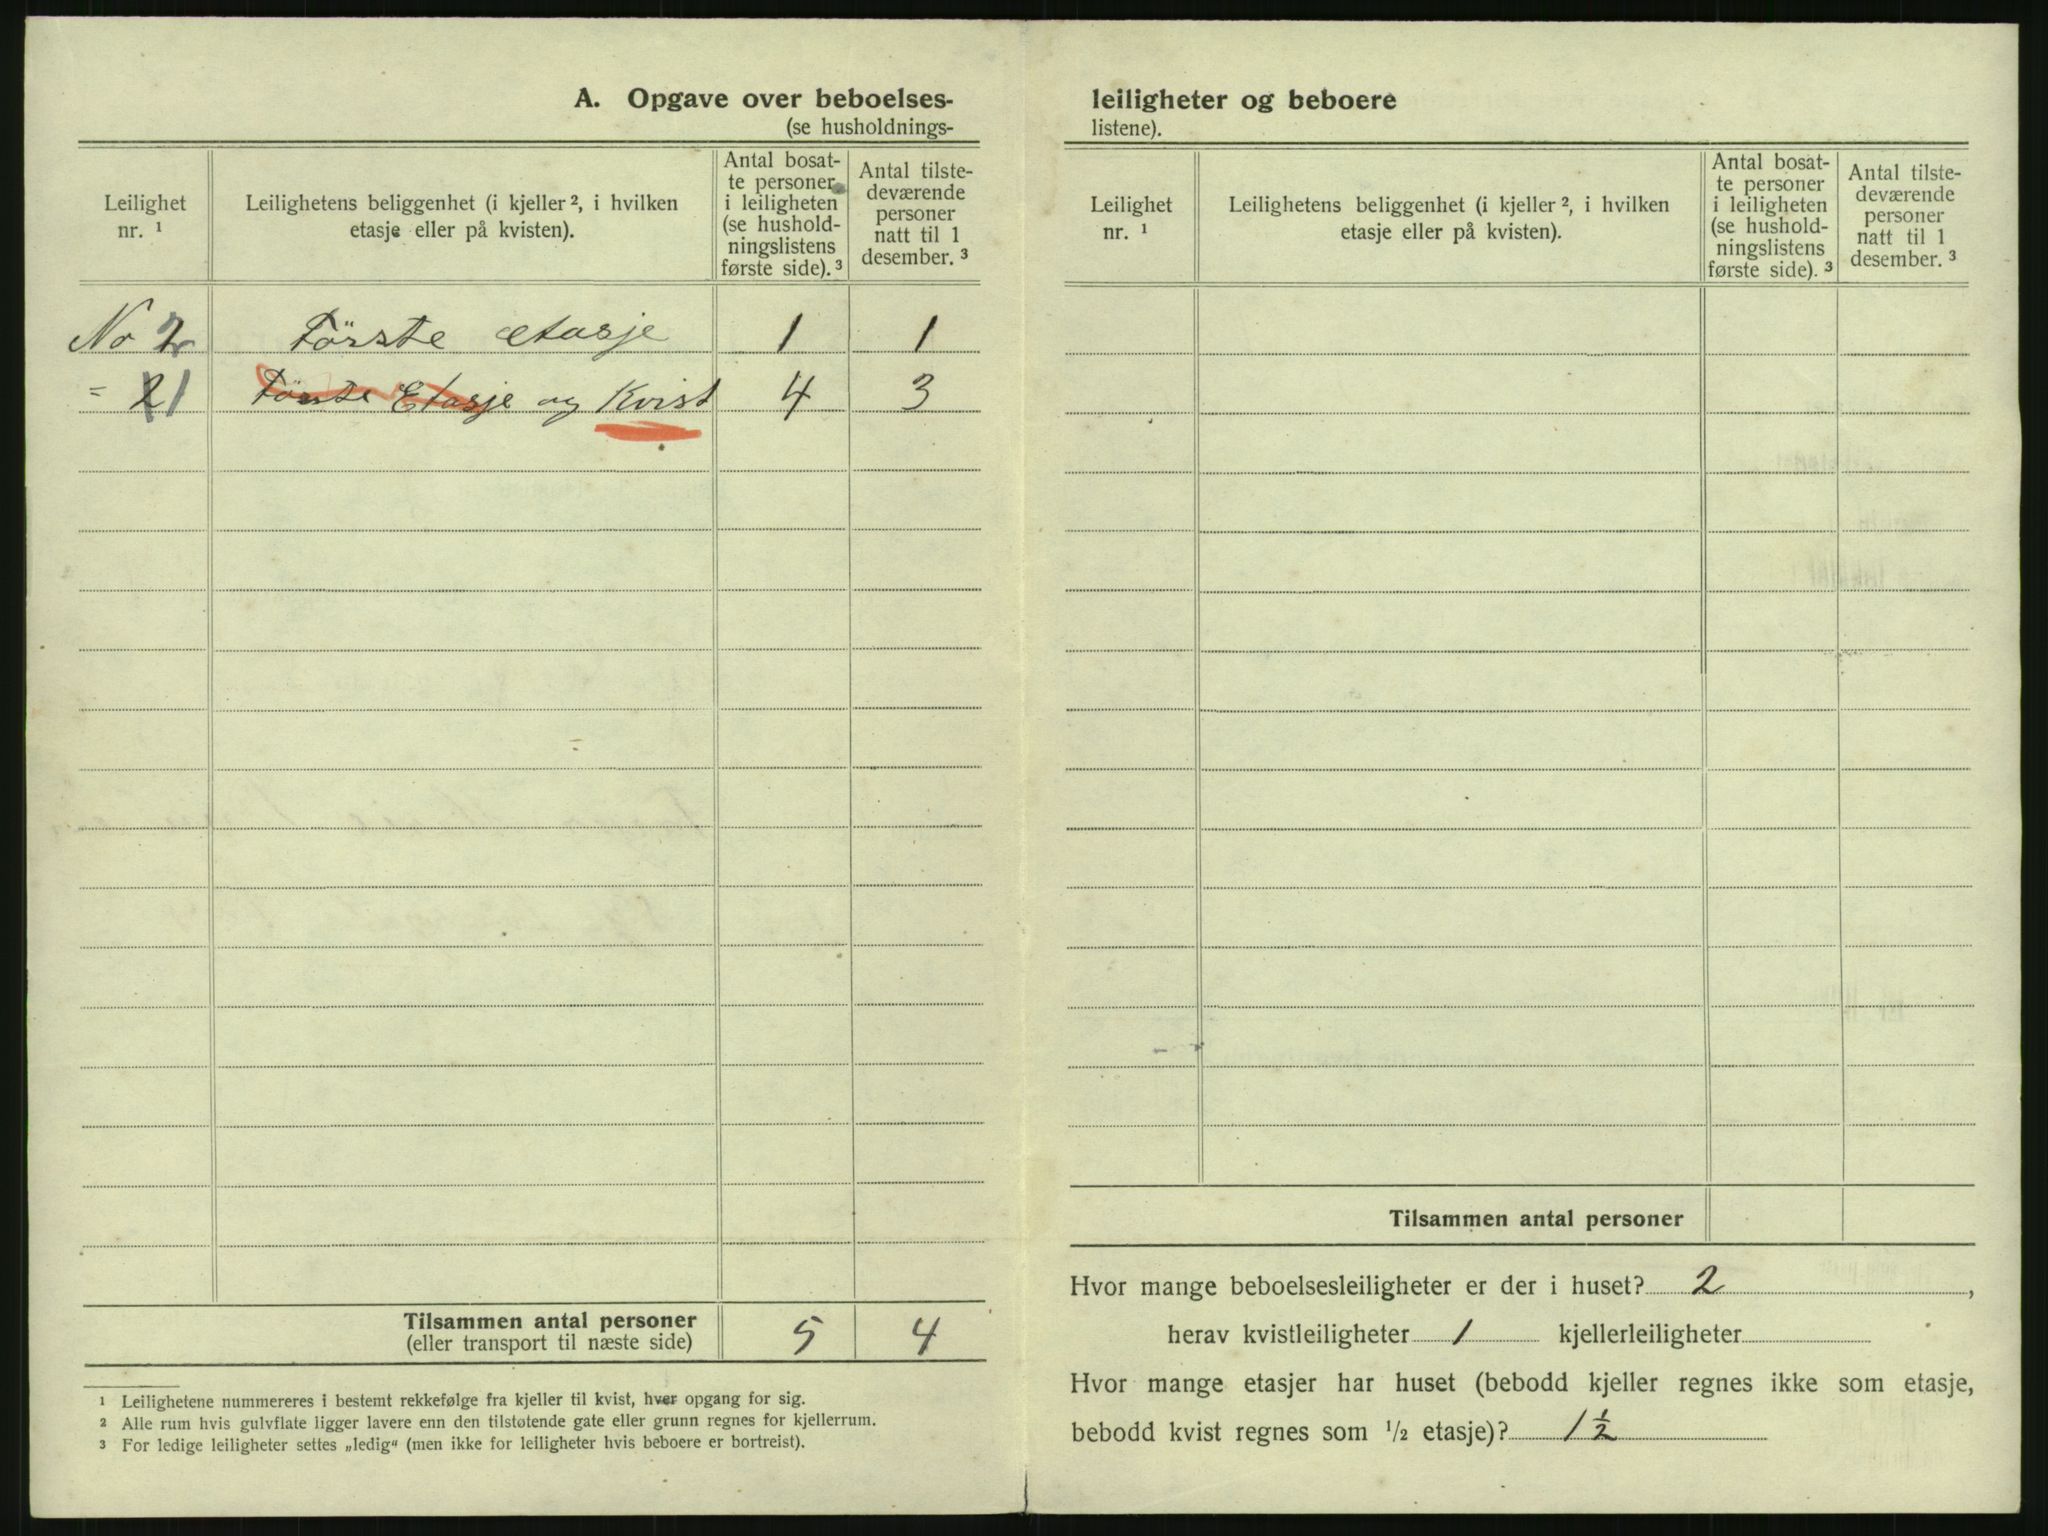 A. Opgave over beboelses-
(se husholdnings-
Leilighet
nr. ¹
Leilighetens beliggenhet (i kjeller ², i hvilken
etasje eller på kvisten).
Antal bosat-
te personer
i leiligheten
(se hushold-
ningslistens
første side). ³
Antal tilste-
deværende
personer
natt til 1
desember. ³
No 2 Første etasje 1 1
= 21 Første Etasje og Kvist 4 3
Tilsammen antal personer 5 4
(eller transport til næste side)
¹ Leilighetene nummereres i bestemt rekkefølge fra kjeller til kvist, hver opgang for sig.
² Alle rum hvis gulvflate ligger lavere enn den tilstøtende gate eller grunn regnes for kjellerrum.
³ For ledige leiligheter settes „ledig“ (men ikke for leiligheter hvis beboere er bortreist).
leiligheter og beboere
listene).
Leilighet
nr. ¹
Leilighetens beliggenhet (i kjeller ², i hvilken
etasje eller på kvisten).
Antal bosat-
te personer
i leiligheten
(se hushold-
ningslistens
første side). ³
Antal tilste-
deværende
personer
natt til 1
desember. ³
Tilsammen antal personer
Hvor mange beboelsesleiligheter er der i huset? 2,
herav kvistleiligheter 1 kjellerleiligheter
Hvor mange etasjer har huset (bebodd kjeller regnes ikke som etasje,
bebodd kvist regnes som ½ etasje)? 1 ½